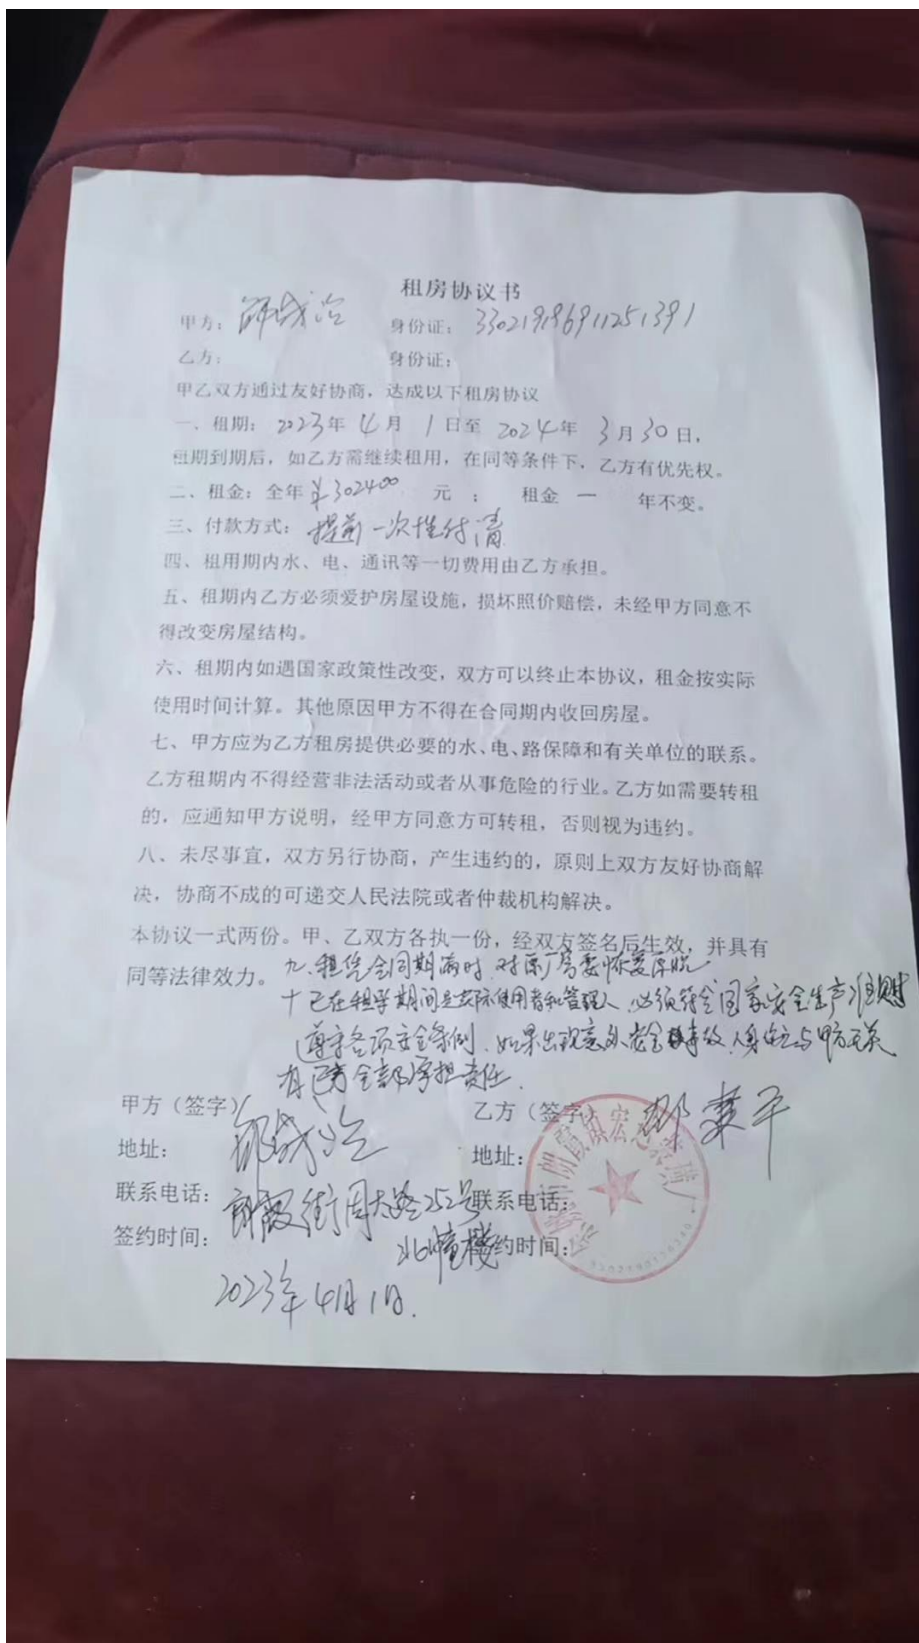 租房协议书
甲方： 身份证：330219196911251391
乙方： 身份证：
甲乙双方通过友好协商，达成以下租房协议
一、租期：2023年4月1日至2024年3月30日，
租期到期后，如乙方需继续租用，在同等条件下，乙方有优先权。
二、租金：全年¥302400元； 租金一年不变。
三、付款方式：提前一次性付清
四、租用期内水、电、通讯等一切费用由乙方承担。
五、租期内乙方必须爱护房屋设施，损坏照价赔偿，未经甲方同意不
得改变房屋结构。
六、租期内如遇国家政策性改变，双方可以终止本协议，租金按实际
使用时间计算。其他原因甲方不得在合同期内收回房屋。
七、甲方应为乙方租房提供必要的水、电、路保障和有关单位的联系。
乙方租期内不得经营非法活动或者从事危险的行业。乙方如需要转租
的，应通知甲方说明，经甲方同意方可转租，否则视为违约。
八、未尽事宜，双方另行协商，产生违约的，原则上双方友好协商解
决，协商不成的可递交人民法院或者仲裁机构解决。
本协议一式两份。甲、乙双方各执一份，经双方签名后生效，并具有
同等法律效力。九.租凭合同期满时 对原厂房要恢复原貌
十 已在租学期间是实际使用者和管理人 必须符合国家安全生产准则
遵守各项安全条例.如果出现意外安全事故.与甲方无关
有已方全部承担责任.
甲方（签字） 乙方（签字）
地址： 地址：
联系电话：朗霞街周太路252号 联系电话：
签约时间： 北幢楼 约时间：
2023年4月1日.